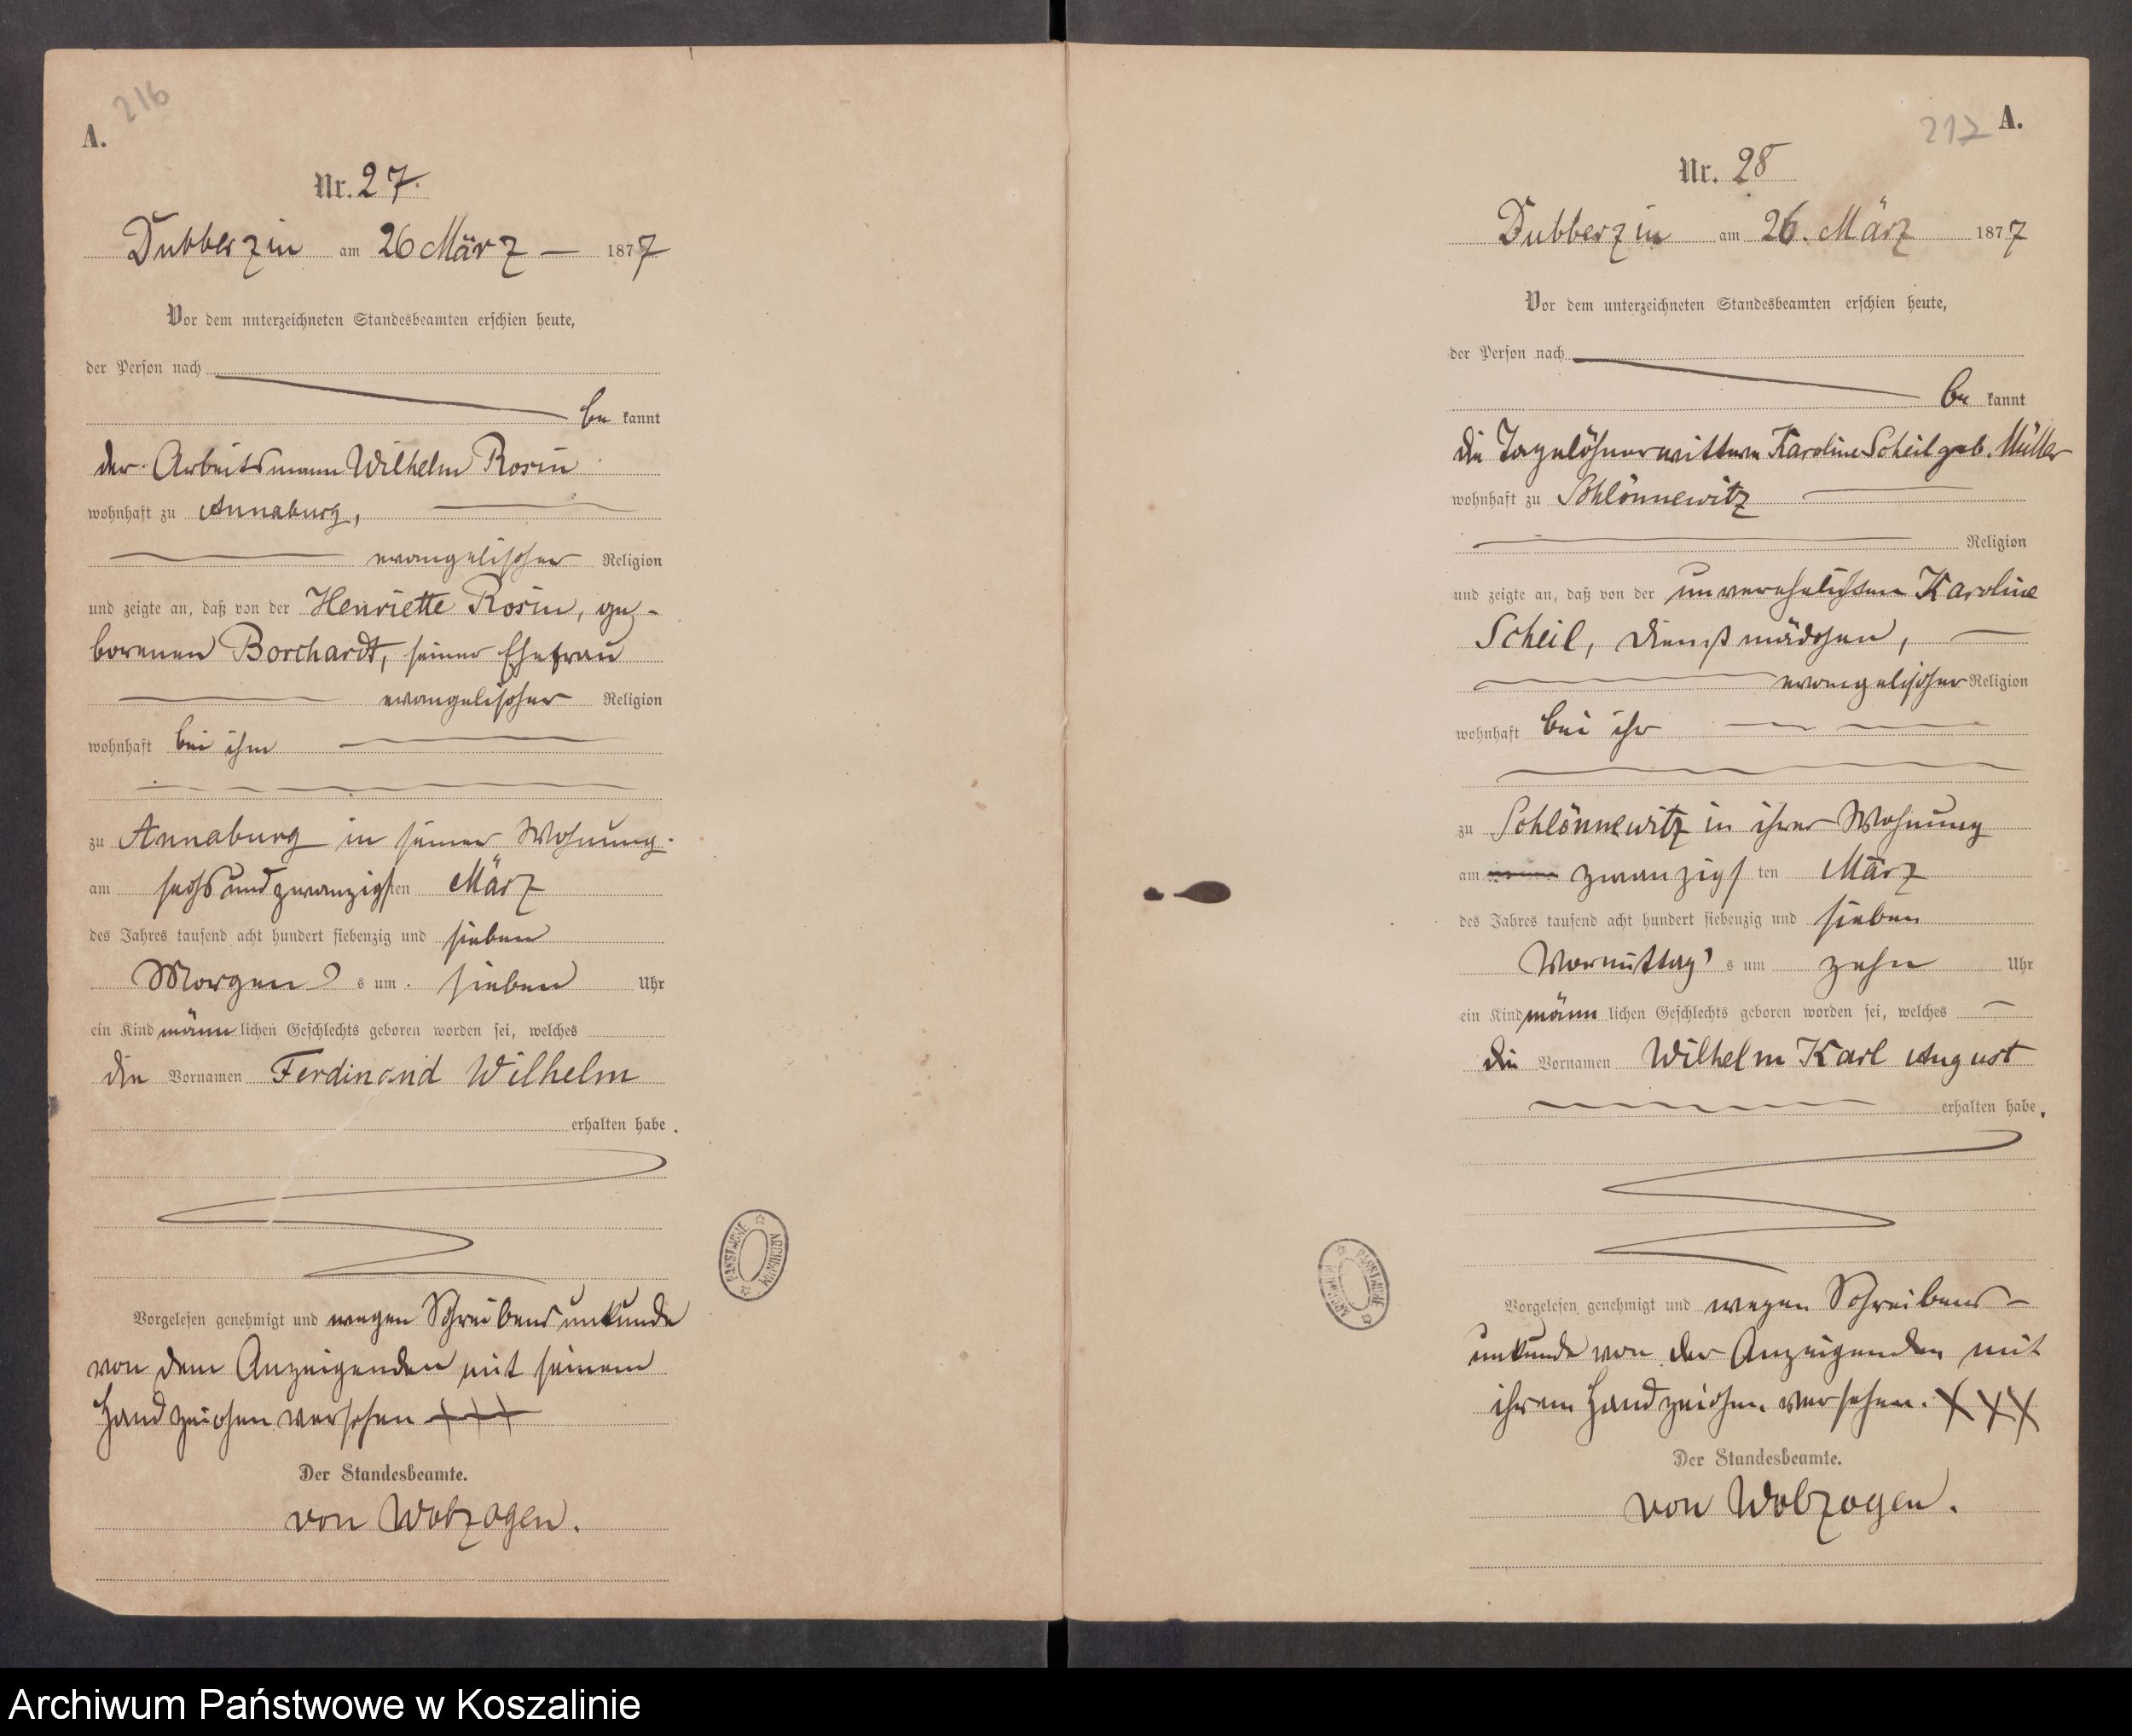 216
A.
Nr. 27.
Dubberzin am 26 März — 1877
Vor dem nnterzeichneten Standesbeamten erschien heute,
der Person nach
be kannt
der Arbeitsmann Wilhelm Rosin
wohnhaft zu Annaburg,
evangelischer Religion
und zeigte an, daß von der Henriette Rosin, ge-
borenen Borchardt, seiner Ehefrau
evangelischer Religion
wohnhaft bei ihm
zu Annaburg in seiner Wohnung.
am sechsundzwanzigsten März
des Jahres tausend acht hundert siebenzig und sieben
Morgens um sieben Uhr
ein Kind männlichen Geschlechts geboren worden sei, welches
die Vornamen Ferdinand Wilhelm
erhalten habe.
Vorgelesen genehmigt und wegen Schreibensunkunde
von dem Anzeigenden mit seinem
Handzeichen versehen +++
Der Standesbeamte.
von Wobzogen.
ARCHIWUM PAŃSTWOWE
217 A.
Nr. 28
Dubberzin am 26. März 1877
Vor dem unterzeichneten Standesbeamten erschien heute,
der Person nach
be kannt
die Tagelöhnerwittwe Karoline Scheil geb. Müller
wohnhaft zu Schlönnewitz
Religion
und zeigte an, daß von der unverehelichten Karoline
Scheil, Dienstmädchen,
evangelischer Religion
wohnhaft bei ihr
zu Schlönnewitz in ihrer Wohnung
am zwanzigsten März
des Jahres tausend acht hundert siebenzig und sieben
Vormittags um zehn Uhr
ein Kind männlichen Geschlechts geboren worden sei, welches —
die Vornamen Wilhelm Karl August
erhalten habe.
Vorgelesen genehmigt und wegen Schreibens-
unkunde von der Anzeigenden mit
ihrem Handzeichen versehen. XXX
Der Standesbeamte.
von Wobzogen.
ARCHIWUM PAŃSTWOWE
Archiwum Państwowe w Koszalinie